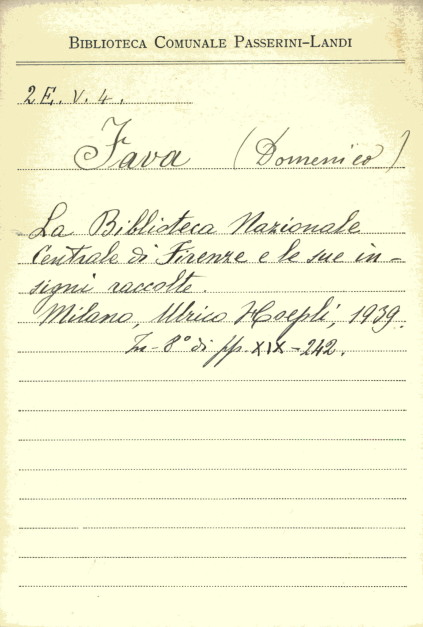 BIBLIOTECA COMUNALE PASSERINI-LANDI
2 E. V. 4.
Fava (Domenico)
La Biblioteca Nazionale
Centrale di Firenze e le sue in-
signi raccolte.
Milano, Ulrico Hoepli, 1939.
In-8° di pp. XIX-242.